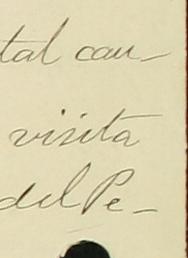 tal cau-
visita
del Pe-